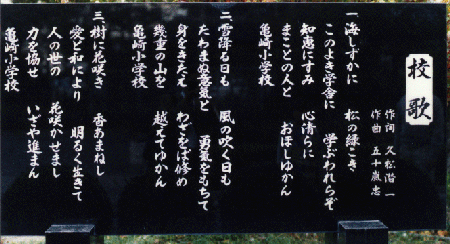 校歌
作詞 久松潜一
作曲 五十嵐忠
一 海しずかに 松の緑こき
このよき学舎に 学ぶわれらぞ
知恵にすみ 心清らに
まことの人と おほしゆかん
亀崎小学校
二 雪降る日も 風の吹く日も
たわまぬ意気と 勇気をもちて
身をきたえ わざをば修め
幾重の山を 越えてゆかん
亀崎小学校
三 樹に花咲き 香あまねし
愛と和により 明るく生きて
人の世の 花咲かせまし
力を協せ いざや進まん
亀崎小学校